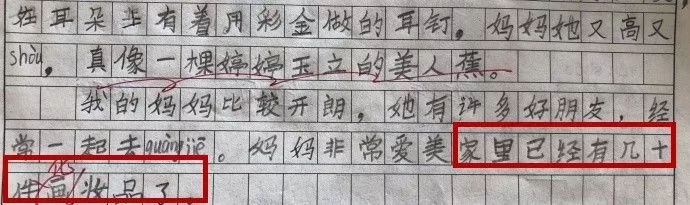 在耳朵上有着用彩金做的耳钉，妈妈她又高又
shòu，真像一棵婷婷玉立的美人蕉。
我的妈妈比较开朗，她有许多好朋友，经
常一起去guàngjiē。妈妈非常爱美家里已经有几十
件画妆品了。